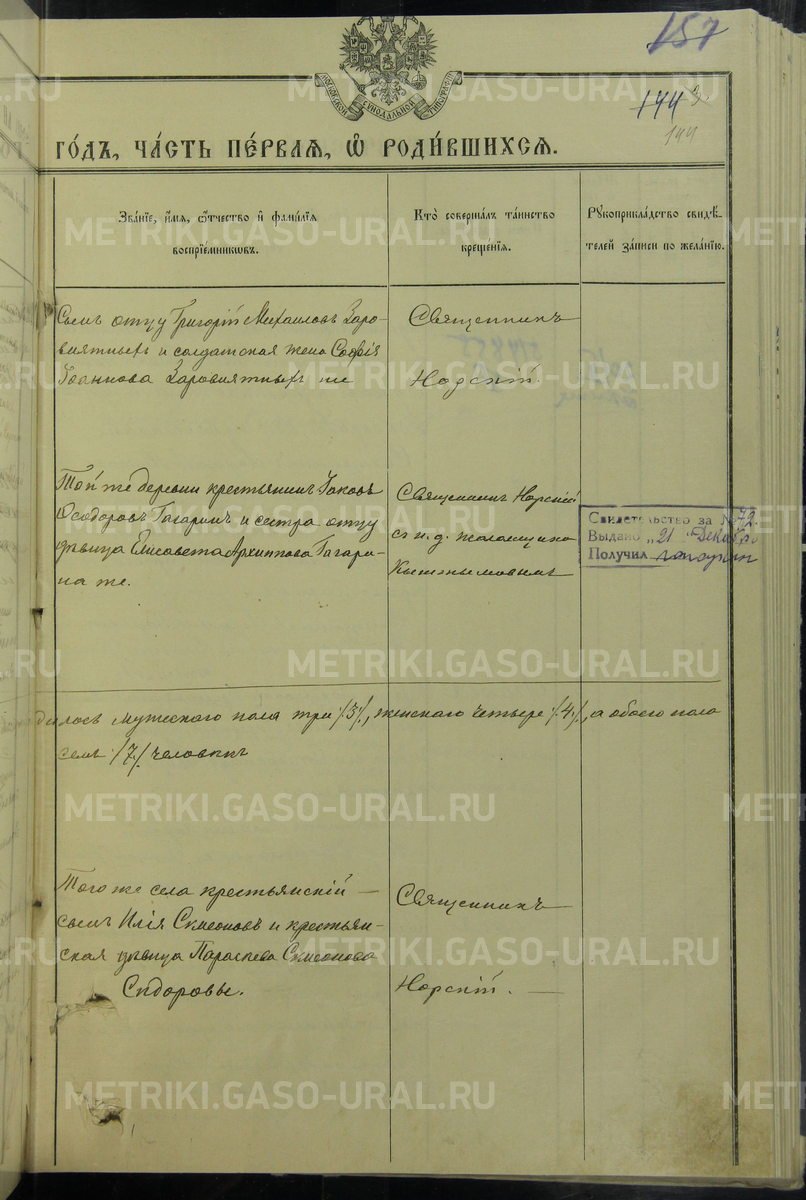 157
144
144
МОСКОВСКОЙ СѴНОДАЛЬНОЙ ТИПОГРАФІИ
ГО́ДЪ, ЧА́СТЬ ПЕ́РВАѦ, Ѡ҆ РОДИ́ВШИХСѦ.
Зва́нїе, и҆́мѧ, ѻ҆́тчество и҆ фами́лїѧ
воспрїе́мникѡвъ.
Кто̀ соверша́лъ та́инство
креще́нїѧ.
Рꙋкоприкла́дство свидѣ́-
телей за́писи по жела́нїю.
Сынъ отцу Григорій Михаиловъ Заро-
вятныхъ и солдатская жена Софія
Іоаннова Заровнятныхъ же
Священникъ
Норскій.
Той же деревни крестьянинъ Іаковъ
Ѳеодоровъ Гагаринъ и сестра отцу
дѣвица Елисавета Архиппова Гагари-
на же.
Священникъ Норскій
съ и. д. псаломщика
Свидетельство за № 72.
Выдано „21 Декабр.
Получил
дилось мужескаго пола три /3/, женскаго четыре /4/, а обоего пола
семь /7/ человѣкъ
Того же села крестьянскій —
сынъ Илія Симеоновъ и крестьян-
ская дѣвица Параскева Симеонова
Сидоровы.
Священникъ
Норскій. —
METRIKI.GASO-URAL.RU